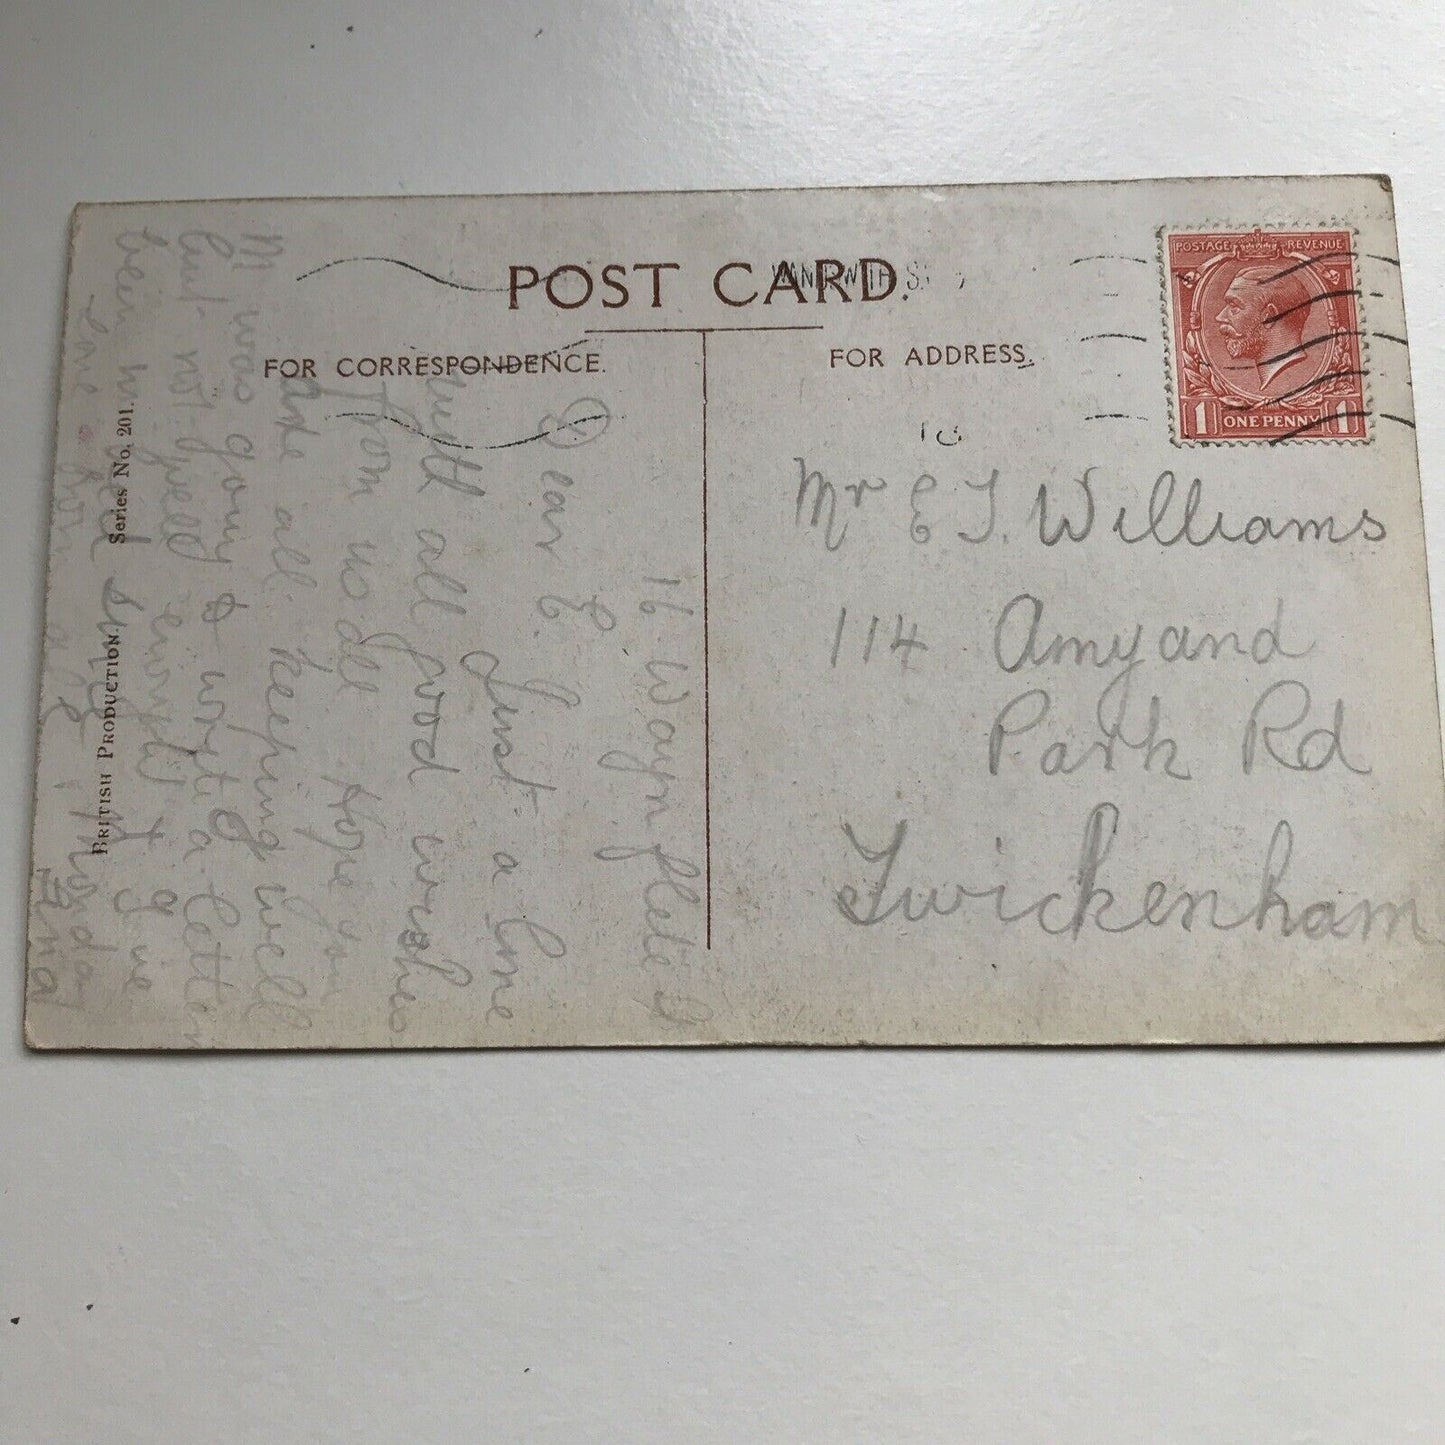 POST CARD.
FOR CORRESPONDENCE.
FOR ADDRESS.
POSTAGE REVENUE
1 ONE PENNY 1
Mr E J. Williams
114 Amyand
Park Rd
Twickenham
16 Waynflete St
Dear E.
Just a line
with all good wishes
from us all Hope you
are all keeping well
M was going to write a letter
but not well enough
been in bed since Monday
Series No. 201.
BRITISH PRODUCTION.